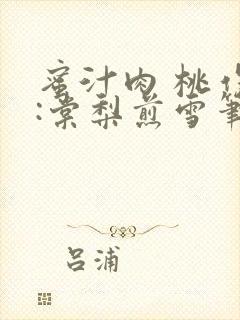 蜜汁肉桃作
:棠梨煎雪筆
吕浦